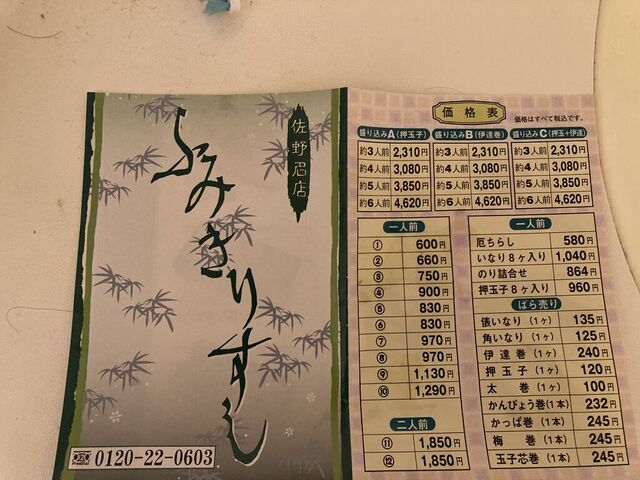 佐野沼店
ふみきりすし
FreeDial 0120-22-0603
価格表
価格はすべて税込です。
盛り込みA(押玉子)
約3人前 2,310円
約4人前 3,080円
約5人前 3,850円
約6人前 4,620円
盛り込みB(伊達巻)
約3人前 2,310円
約4人前 3,080円
約5人前 3,850円
約6人前 4,620円
盛り込みC(押玉+伊達)
約3人前 2,310円
約4人前 3,080円
約5人前 3,850円
約6人前 4,620円
一人前
① 600円
② 660円
③ 750円
④ 900円
⑤ 830円
⑥ 830円
⑦ 970円
⑧ 970円
⑨ 1,130円
⑩ 1,290円
二人前
⑪ 1,850円
⑫ 1,850円
一人前
厄ちらし 580円
いなり8ヶ入り 1,040円
のり詰合せ 864円
押玉子8ヶ入り 960円
ばら売り
俵いなり(1ヶ) 135円
角いなり(1ヶ) 125円
伊達巻(1ヶ) 240円
押玉子(1ヶ) 120円
太巻(1ヶ) 100円
かんぴょう巻(1本) 232円
かっぱ巻(1本) 245円
梅巻(1本) 245円
玉子芯巻(1本) 245円